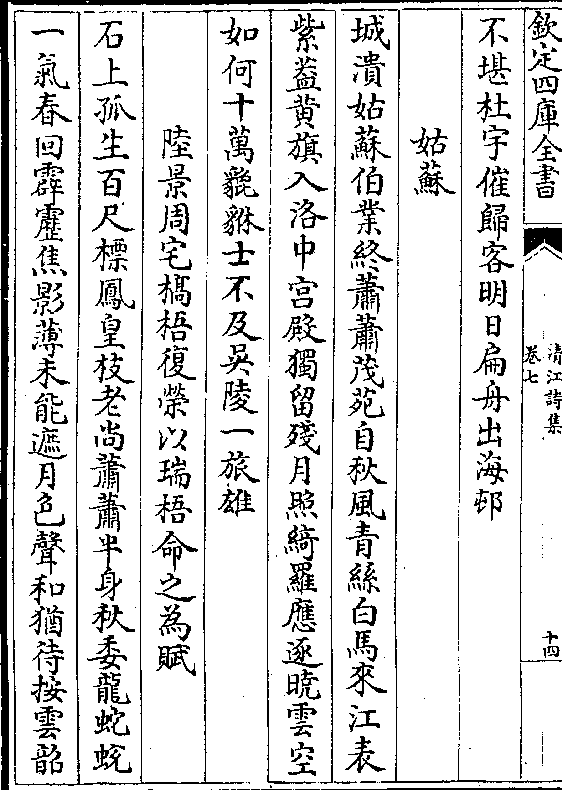 欽定四庫全書
清江詩集
卷七
十四
不堪杜宇催歸客明日扁舟出海邨
姑蘇
城潰姑蘇伯業終蕭蕭茂苑自秋風青絲白馬來江表
紫葢黄旗入洛中宫殿獨留殘月照綺羅應逐曉雲空
如何十萬貔貅士不及吳陵一旅雄
陸景周宅槁梧復榮以瑞梧命之為賦
石上孤生百尺標鳳皇枝老尚蕭蕭半身秋委龍蛇蛻
一氣春回霹靂焦影薄未能遮月色聲和猶待按雲韶